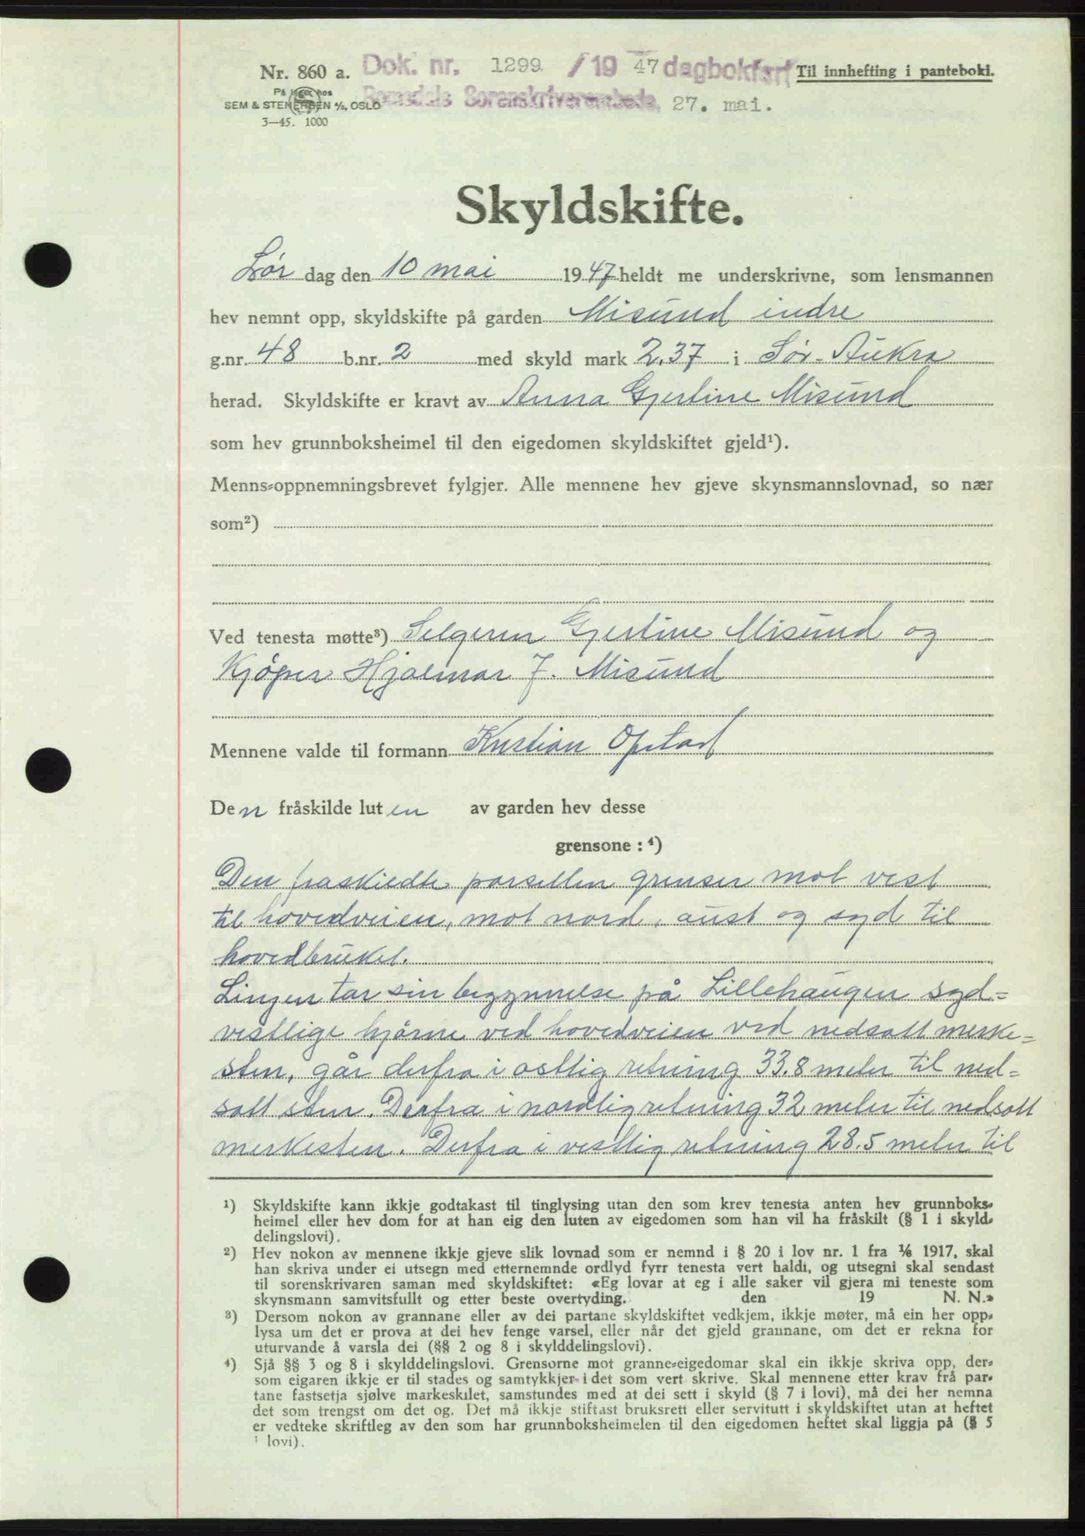 Nr. 860 a. Dok. nr. 1299 / 19 47 dagbokført Til innhefting i panteboki.
På lager hos
SEM & STENERSEN A/S, OSLO Romsdals Sorenskriverembede, 27. mai.
3—45. 1000
Skyldskifte.
Lør dag den 10 mai 1947 heldt me underskrivne, som lensmannen
hev nemnt opp, skyldskifte på garden Misund indre
g.nr. 48 b.nr. 2 med skyld mark 2,37 i Sør-Aukra
herad. Skyldskifte er kravt av Anna Gjertine Misund
som hev grunnboksheimel til den eigedomen skyldskiftet gjeld¹).
Menns-oppnemningsbrevet fylgjer. Alle mennene hev gjeve skynsmannslovnad, so nær
som²)
Ved tenesta møtte³) Selgeren Gjertine Misund og
Kjøper Hjalmar J. Misund
Mennene valde til formann Kristian Opstad
Den fråskilde luten av garden hev desse
grensone : ⁴)
Den fraskiedte parsellen grenser mot vest
til hovedveien, mot nord, aust og syd til
hovedbruket.
Linjen tar sin begynnelse på Lillehaugen syd=
vestlige hjørne ved hovedveien ved nedsatt merke=
sten, går derfra i østlig retning 33.8 meter til ned=
satt sten. Derfra i nordlig retning 32 meter til nedsatt
merkesten. Derfra i vestlig retning 28.5 meter til
¹) Skyldskifte kann ikkje godtakast til tinglysing utan den som krev tenesta anten hev grunnboks-
heimel eller hev dom for at han eig den luten av eigedomen som han vil ha fråskilt (§ 1 i skyld-
delingslovi).
²) Hev nokon av mennene ikkje gjeve slik lovnad som er nemnd i § 20 i lov nr. 1 fra ¹⁄₆ 1917, skal
han skriva under ei utsegn med etternemnde ordlyd fyrr tenesta vert haldi, og utsegni skal sendast
til sorenskrivaren saman med skyldskiftet: «Eg lovar at eg i alle saker vil gjera mi teneste som
skynsmann samvitsfullt og etter beste overtyding. den 19 N. N.»
³) Dersom nokon av grannane eller av dei partane skyldskiftet vedkjem, ikkje møter, må ein her opp-
lysa um det er prova at dei hev fenge varsel, eller når det gjeld grannane, om det er rekna for
uturvande å varsla dei (§§ 2 og 8 i skylddelingslovi).
⁴) Sjå §§ 3 og 8 i skylddelingslovi. Grensorne mot granne-eigedomar skal ein ikkje skriva opp, der-
som eigaren ikkje er til stades og samtykkjer i det som vert skrive. Skal mennene etter krav frå par-
tane fastsetja sjølve markeskilet, samstundes med at dei sett i skyld (§ 7 i lovi), må dei her nemna
det som trengst om det og. Det må ikkje stiftast bruksrett eller servitutt i skyldskiftet utan at heftet
er vedteke skriftleg av den som har grunnboksheimelen til den eigedomen heftet skal liggja på (§ 5
i lovi).